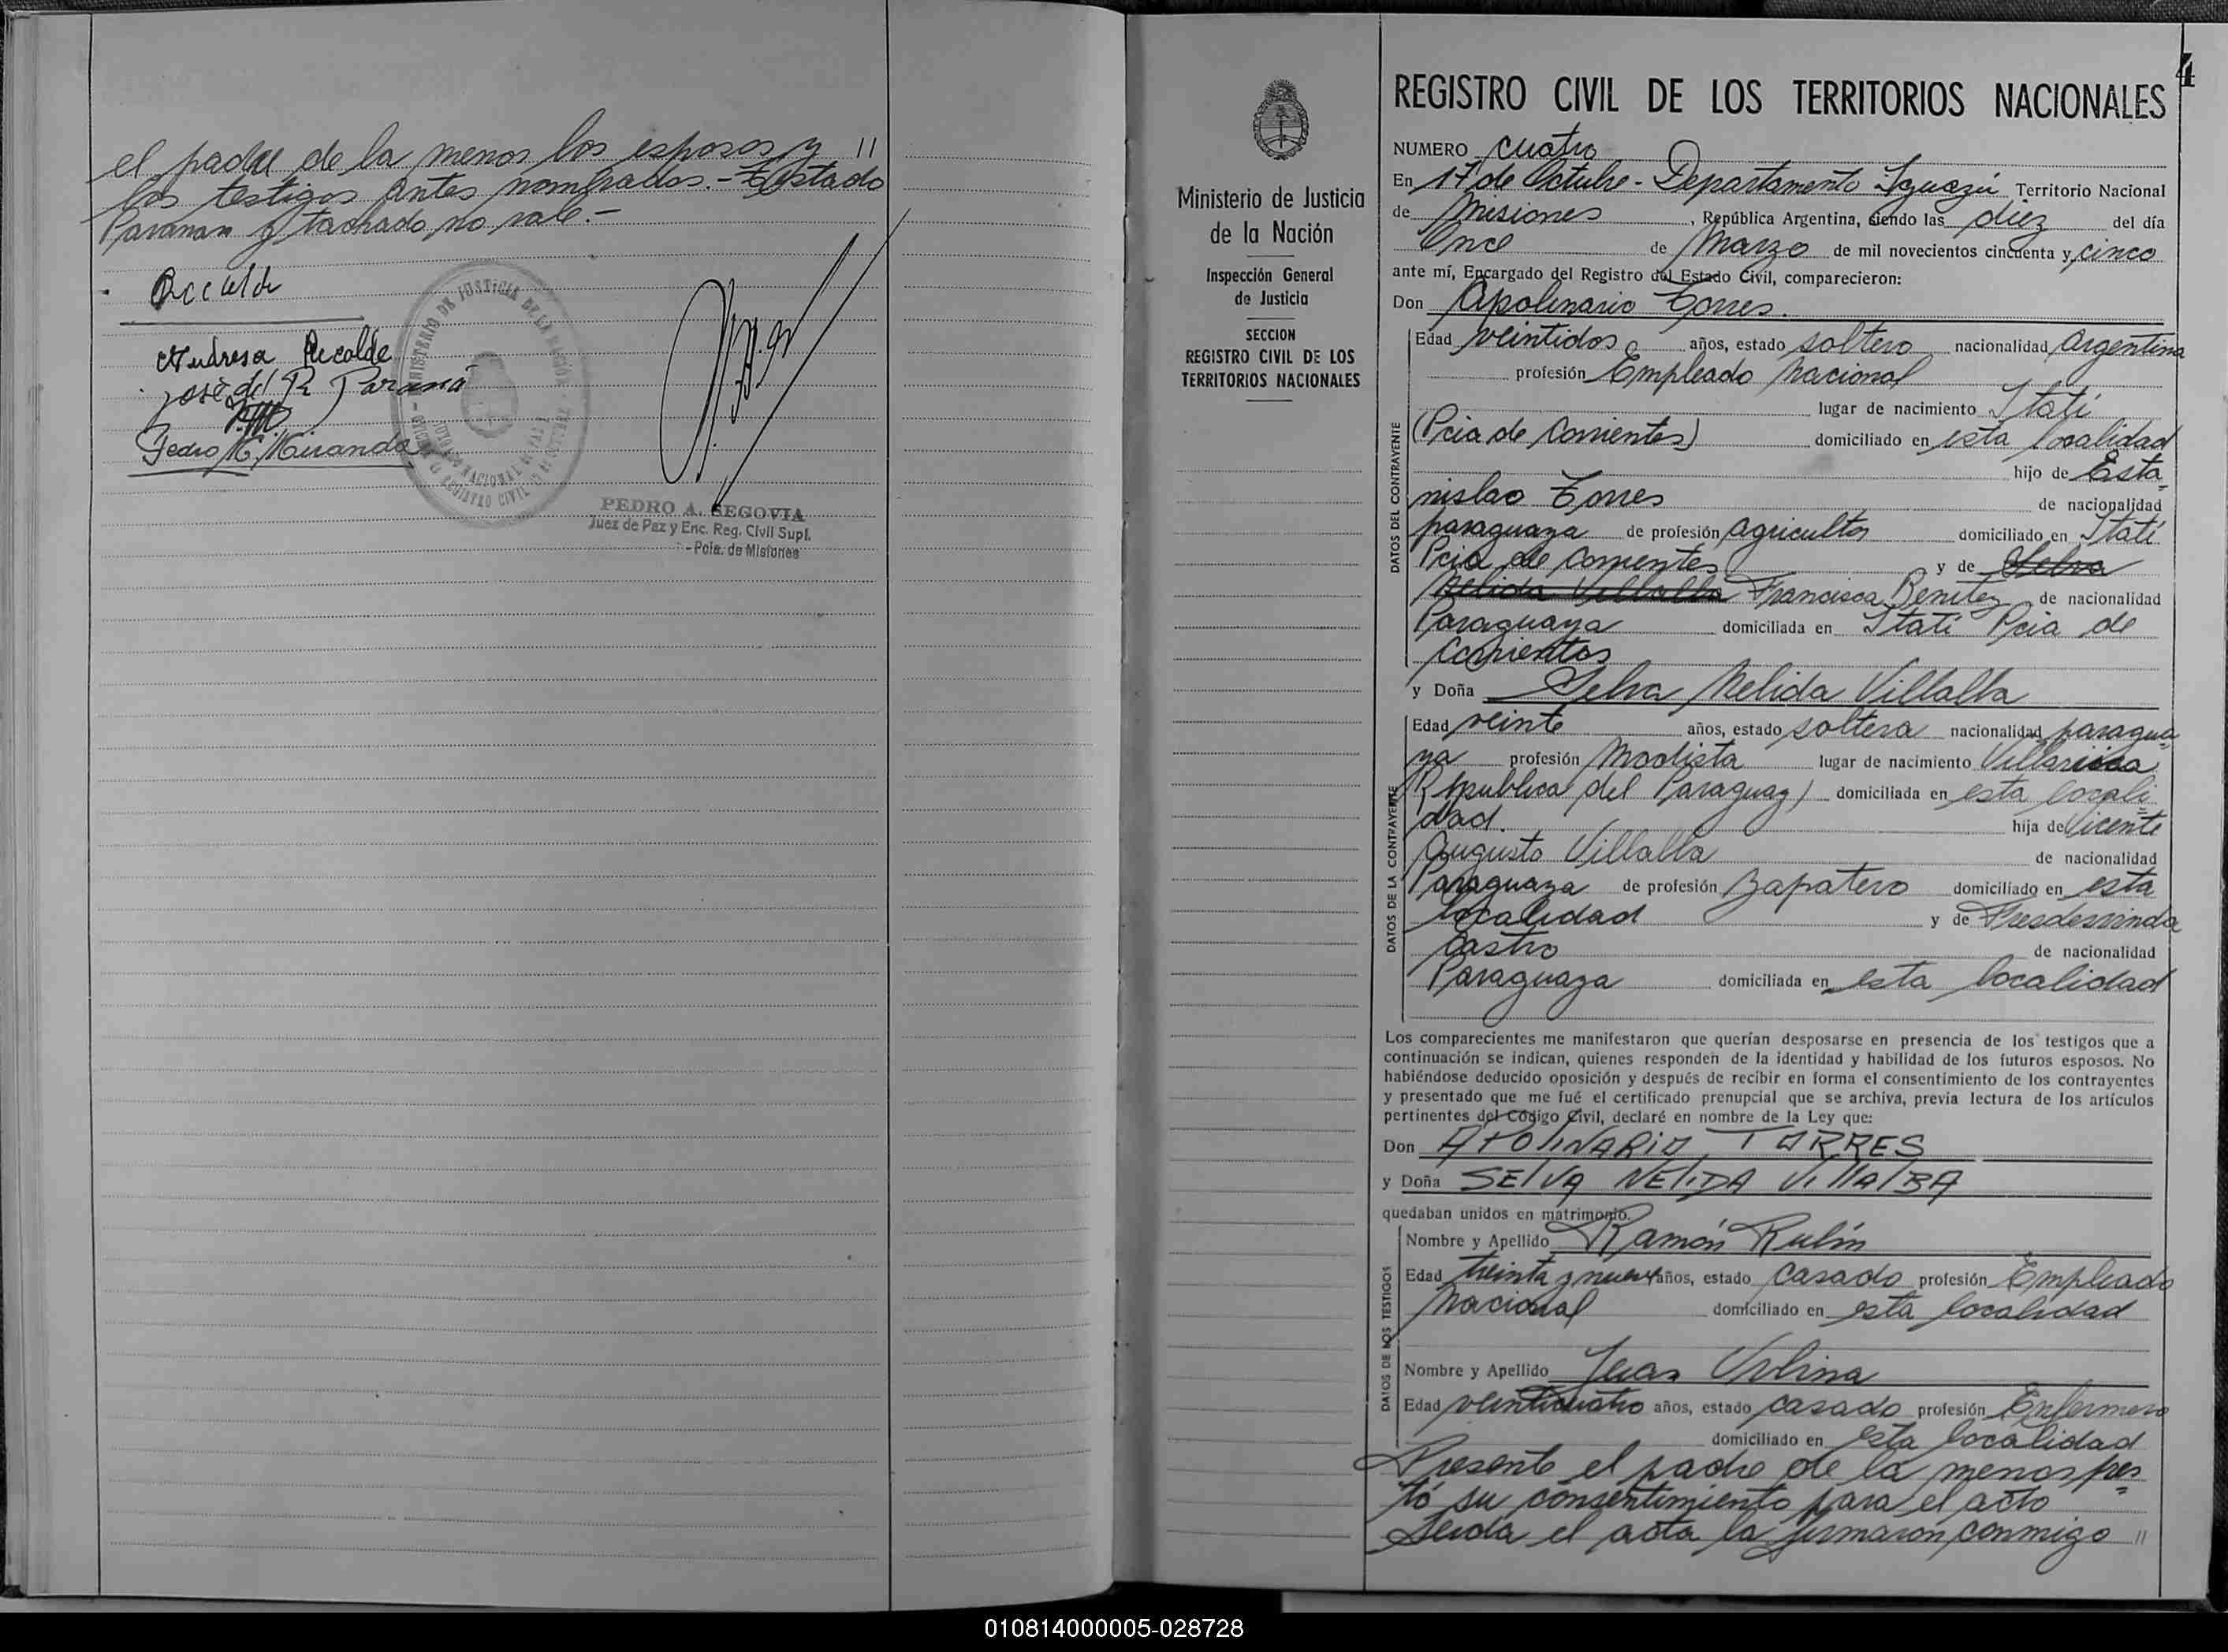 el padre de la menor los esposos y //
los testigos antes nombrados.- Testado
Paranan y tachado no vale.-
Recalde
Andresa Recalde
José del R Paraná
Pedro M. Miranda
PEDRO A. SEGOVIA
Juez de Paz y Enc. Reg. Civil Supl.
- Pcia. de Misiones
4
Ministerio de Justicia
de la Nación
Inspección General
de Justicia
SECCION
REGISTRO CIVIL DE LOS
TERRITORIOS NACIONALES
REGISTRO CIVIL DE LOS TERRITORIOS NACIONALES
NUMERO cuatro
En 17 de Octubre - Departamento Iguazú Territorio Nacional
de Misiones, República Argentina, siendo las diez del día
Once de Marzo de mil novecientos cincuenta y cinco
ante mí, Encargado del Registro del Estado Civil, comparecieron:
Don Apolinario Torres.
DATOS DEL CONTRAYENTE
Edad veintidos años, estado soltero nacionalidad Argentina
profesión Empleado Nacional
lugar de nacimiento Itatí
(Pcia de Corrientes) domiciliado en esta localidad
hijo de Esta=
nislao Torres de nacionalidad
paraguaya de profesión agricultor domiciliado en Itatí
Pcia de Corrientes y de Selva
Nelida Villalba Francisca Benitez de nacionalidad
Paraguaya domiciliada en Itatí Pcia de
Corrientes
y Doña Selva Nelida Villalba
DATOS DE LA CONTRAYENTE
Edad veinte años, estado soltera nacionalidad paragua=
ya profesión Modista lugar de nacimiento
Republica del Paraguay) domiciliada en esta locali=
dad. hija de Vicente
Augusto Villalba de nacionalidad
Paraguaya de profesión Zapatero domiciliado en esta
localidad y de
Castro de nacionalidad
Paraguaya domiciliada en esta localidad
Los comparecientes me manifestaron que querían desposarse en presencia de los testigos que a
continuación se indican, quienes responden de la identidad y habilidad de los futuros esposos. No
habiéndose deducido oposición y después de recibir en forma el consentimiento de los contrayentes
y presentado que me fué el certificado prenupcial que se archiva, previa lectura de los artículos
pertinentes del Código Civil, declaré en nombre de la Ley que:
Don APOLINARIO TORRES
y Doña SELVA NELIDA VILLALBA
quedaban unidos en matrimonio.
DATOS DE LOS TESTIGOS
Nombre y Apellido Ramón Rulín
Edad treinta y nueve años, estado casado profesión Empleado
Nacional domiciliado en esta localidad
Nombre y Apellido Juan
Edad veinticuatro años, estado casado profesión Enfermero
domiciliado en esta localidad
Presente el padre de la menor pres=
tó su consentimiento para el acto
Leida el acta la firmaron conmigo //
010814000005-028728